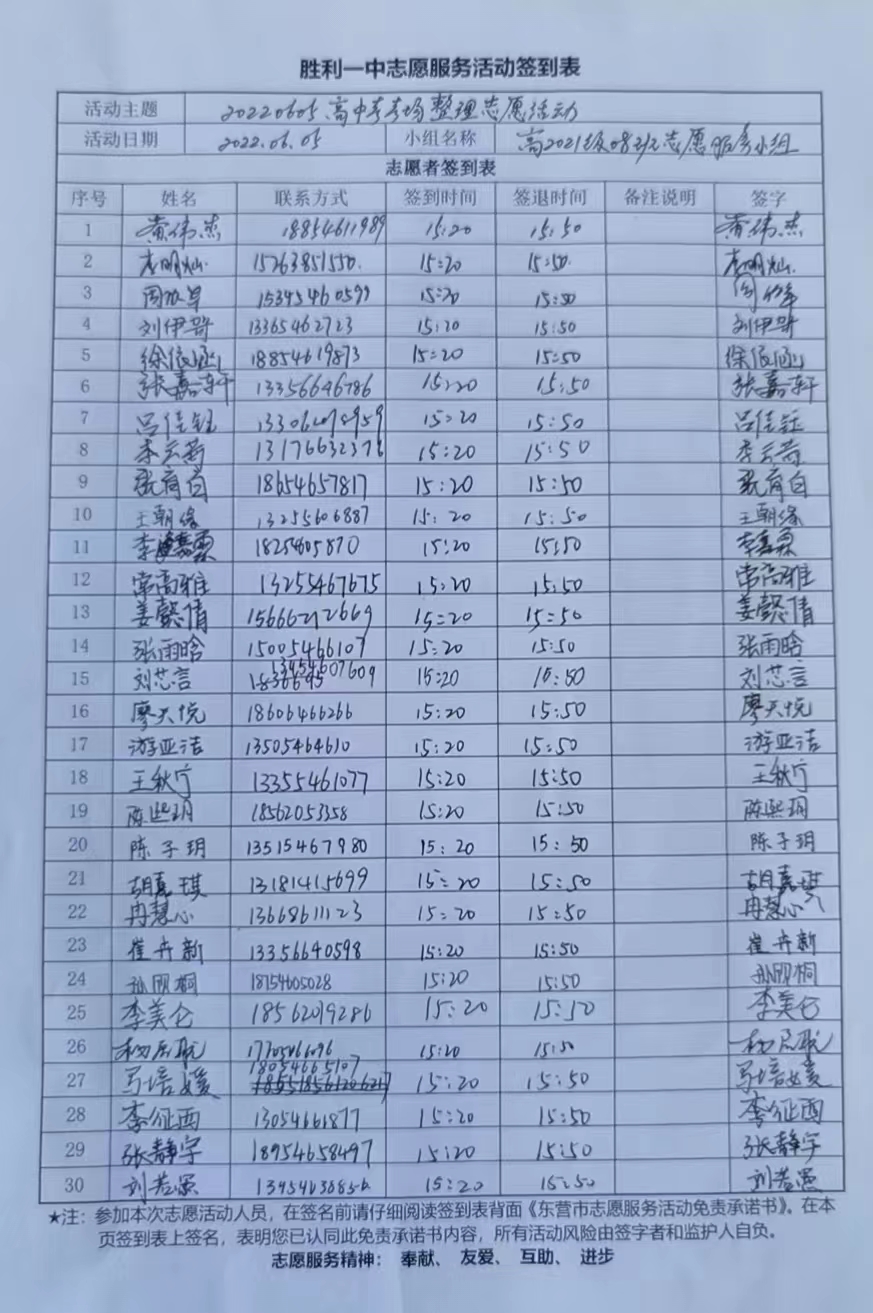 胜利一中志愿服务活动签到表
活动主题 20220605高中考考场整理志愿活动
活动日期 2022.06.05 小组名称 高2021级08班志愿服务小组
志愿者签到表
序号 姓名 联系方式 签到时间 签退时间 备注说明 签字
1 黄伟杰 18854611989 15:20 15:50 黄伟杰
2 李明灿 15263851550. 15:20 15:50. 李明灿
3 15345460599 15:20 15:50
4 刘伊哿 13365462723 15:20 15:50 刘伊哿
5 徐依涵 18854619873 15:20 15:50 徐依涵
6 张嘉轩 13356646786 15:20 15:50 张嘉轩
7 吕佳钰 15:20 15:50 吕佳钰
8 李云茜 15:20 15:50 李云茜
9 18654657817 15:20 15:50
10 王朝缘 13255606887 15:20 15:50 王朝缘
11 李嘉霖 15:20 15:50 李嘉霖
12 常高雅 13255467675 15:20 15:50 常高雅
13 姜懿倩 15666212669 15:20 15:50 姜懿倩
14 张雨晗 15005466107 15:20 15:50 张雨晗
15 刘芯言 15:20 15:50 刘芯言
16 廖天悦 18606466266 15:20 15:50 廖天悦
17 游亚洁 13505464610 15:20 15:50 游亚洁
18 王秋宁 13355461077 15:20 15:50 王秋宁
19 陈熙玥 18562053358 15:20 15:50 陈熙玥
20 陈子玥 13515467980 15:20 15:50 陈子玥
21 胡嘉琪 13181415699 15:20 15:50 胡嘉琪
22 冉慧心 13668611123 15:20 15:50 冉慧心
23 崔卉新 13356640598 15:20 15:50 崔卉新
24 18754605028 15:20 15:50
25 李美仑 18562019286 15:20 15:50 李美仑
26 15:20 15:50
27 马培媛 18054665107 15:20 15:50 马培媛
28 李征西 13054661877 15:20 15:50 李征西
29 张静宇 18954658497 15:20 15:50 张静宇
30 刘若愚 15:20 15:50 刘若愚
★注：参加本次志愿活动人员，在签名前请仔细阅读签到表背面《东营市志愿服务活动免责承诺书》。在本
页签到表上签名，表明您已认同此免责承诺书内容，所有活动风险由签字者和监护人自负。
志愿服务精神： 奉献、 友爱、 互助、 进步